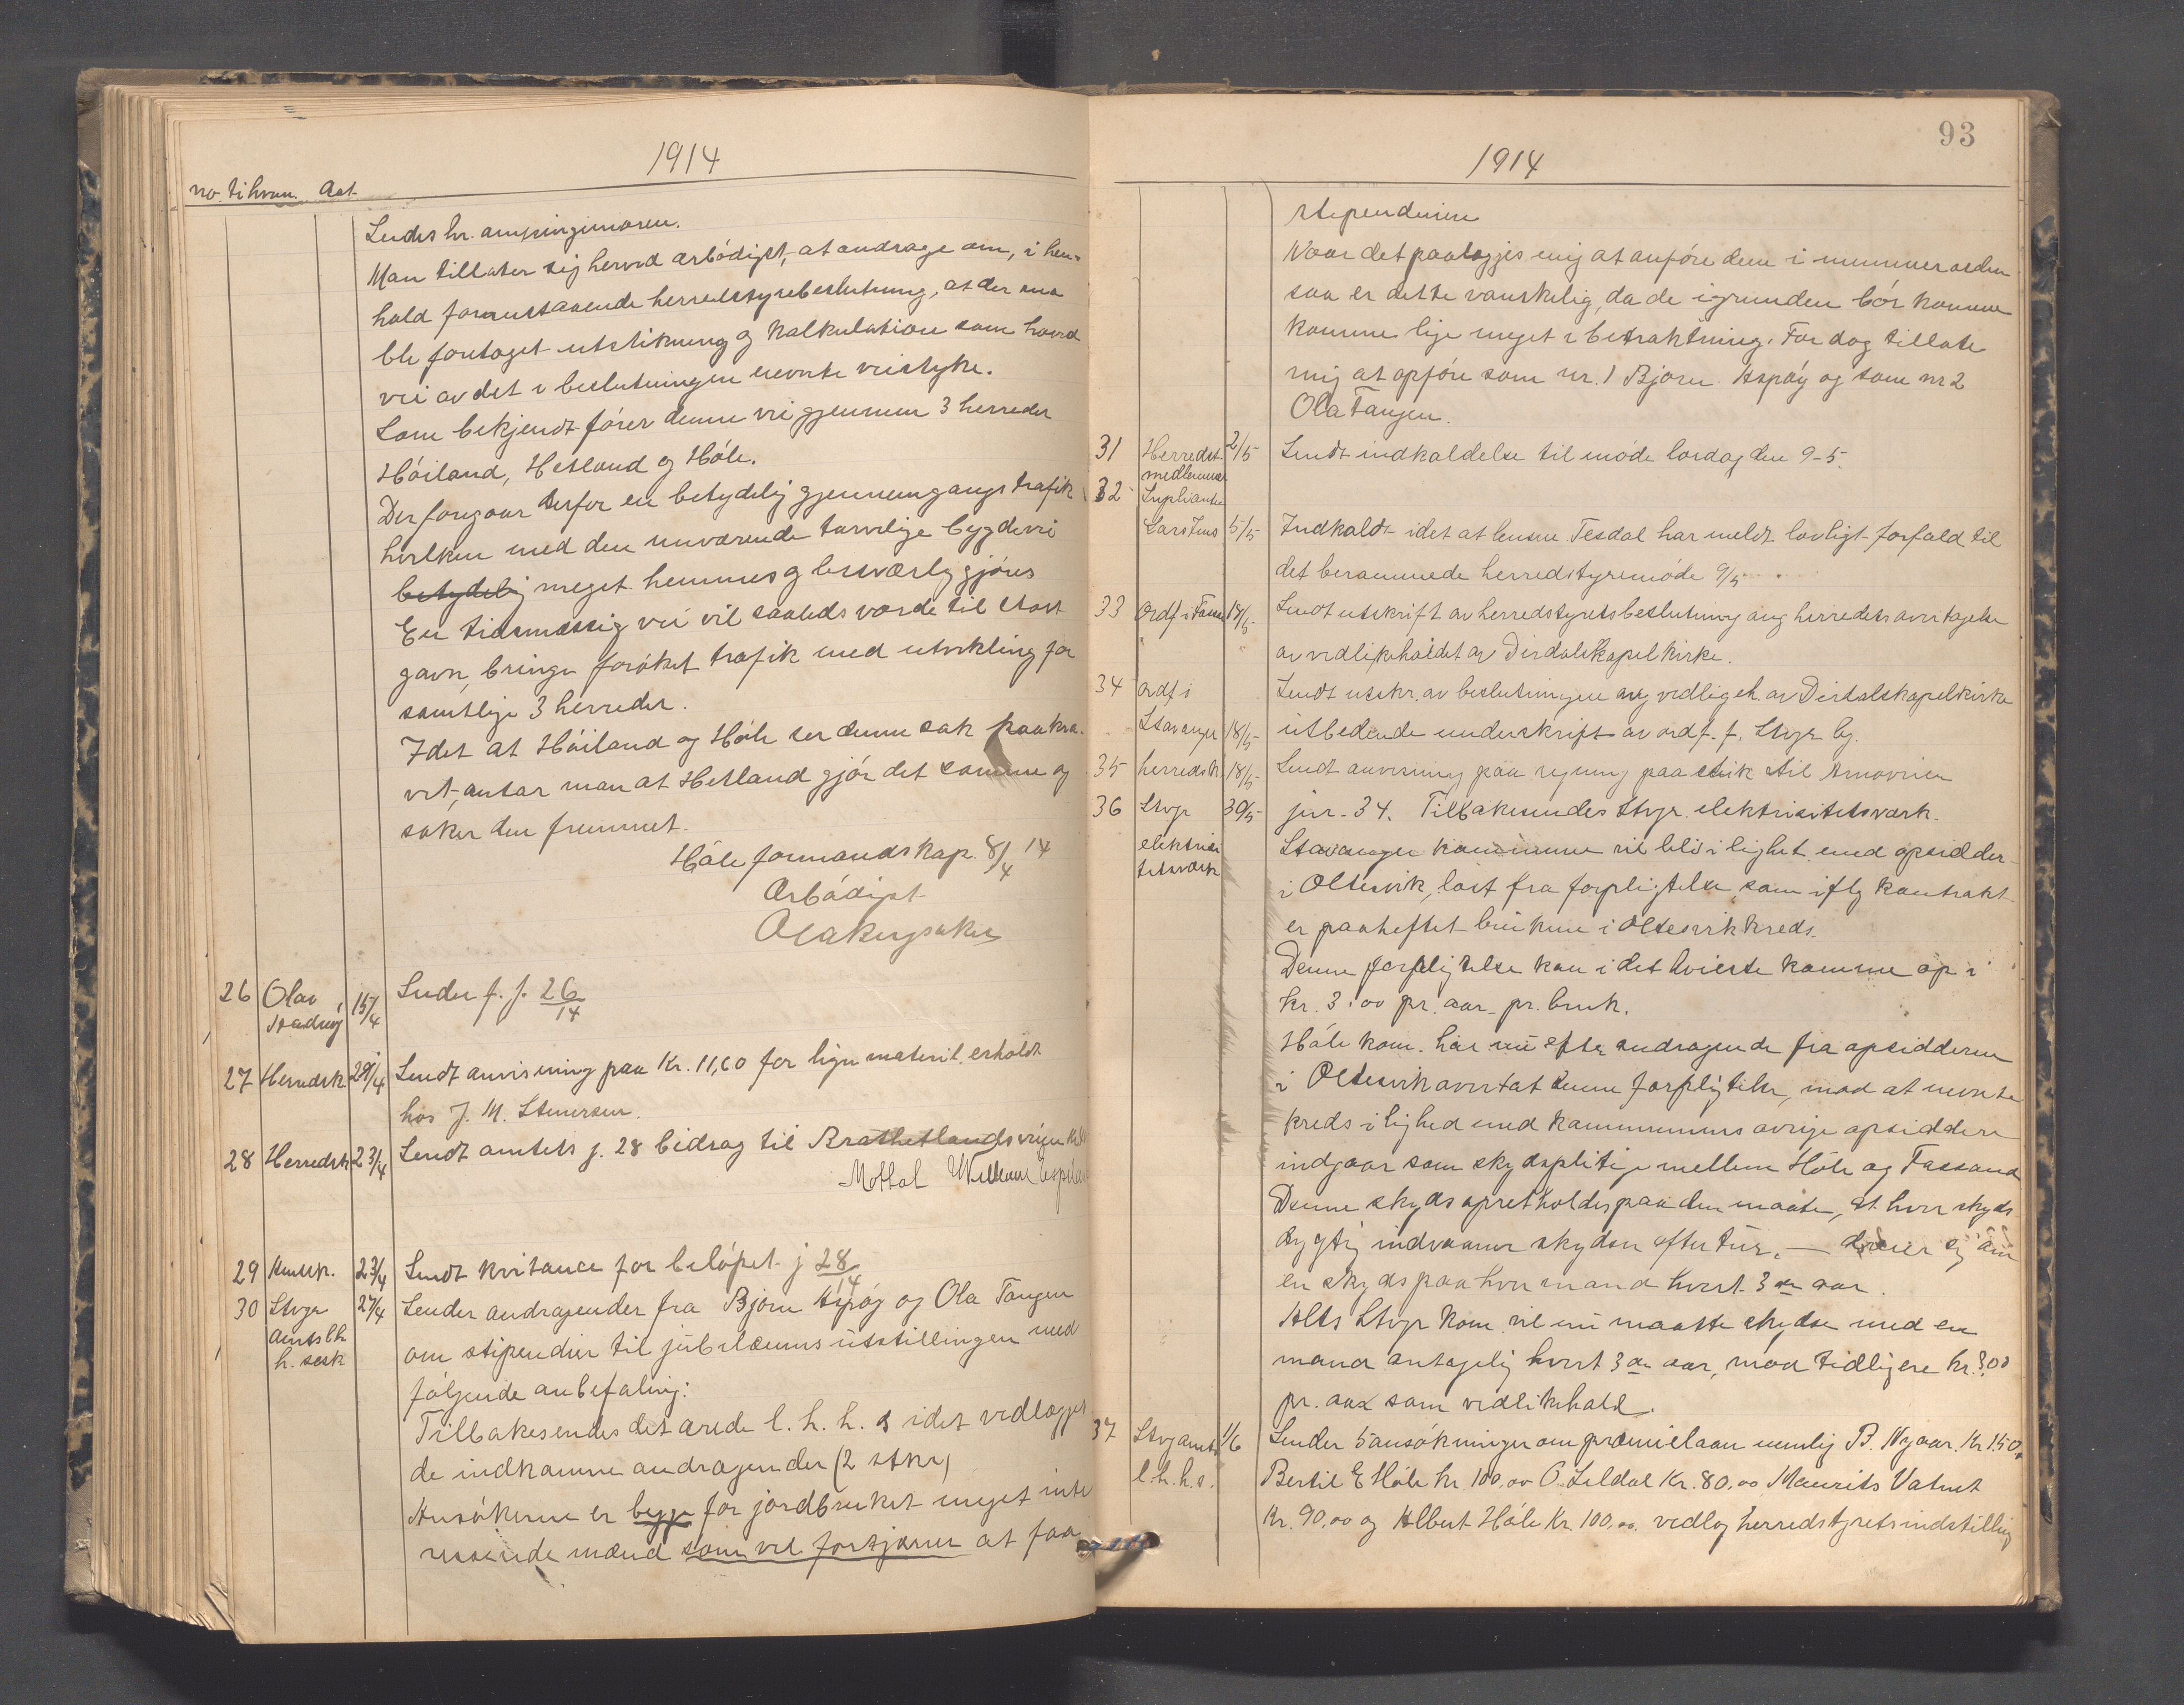 1914
no. tihvem. Dat.
Sendes hr. amtsingeniøren.
Man tillater sig herved ærbødigst, at andrage om, i hen-
hold foranstaaende herredsstyrebeslutning, at der maa
bli foretaget utstikning og kalkulation som hoved
vei av det i beslutningen nevnte veistyke.
Som bekjendt fører denne vei gjennem 3 herreder
Høiland, Hetland og Høle.
Der foregaar derfor en betydelig gjennemgangs trafik
hvilken med den nuværende tarvelige bygdevei
betydelig meget hemmes og besværlig gjøres
En tidsmæssig vei vil saaleds være til stort
gavn, bringe forøket trafik med utvikling for
samtlige 3 herreder.
Idet at Høiland og Høle ser denne sak paakræ-
vet, antar man at Hetland gjør det samme og
søker den fremmet.
Høle formandskap 8/4 14
Ærbødigst
26 Olav 15/4 Sender j. f. 26/14
27 Herredsk 20/4 Sendt anvisning paa Kr. 11,60 for lign. materiel erholdt
hos J. M. Stenersen.
28 Herredsk 23/4 Sendt amtets j. 28 bidrag til Brathetlandsveien
Mottat William Espeland
29 Amtsk. 23/4 Sendt kvitance for beløpet j 28/14
30 Stvgr 27/4 Sender andragender fra Bjørn Aspøy og Ola Tangen
amts lh. om stipendier til jubilæums utstillingen med
h. selsk følgende anbefaling:
Tilbakesendes det ærede l. h. h. s idet vedlægges
de indkomne andragender (2 stkr)
Ansøkerne er begge for jordbruket meget inte
resserede mænd som vel fortjener at faa
93
1914
stipendierne
Naar det paalægges mig at anføre dem i nummerorden
saa er dette vanskelig, da de i grunden bør komme
komme lige meget i betraktning. Før dog tillate
mig at opføre som nr. 1 Bjørn Aspøy og som nr 2
Ola Tangen.
31 Herredst. 2/5 Sendt indkaldelse til møde lørdag den 9-5.
medlemmer
32 Suplianten
Lars Ims 5/5 Indkaldt idet at lensm. Tesdal har meldt lovligt forfald til
det berammede herredstyremøde 9/5
33 Ordf i 18/5 Sendt utskrift av herredstyrets beslutning ang herredets overtagelse
av vedlikeholdet av Dirdalskapelkirke.
34 Ordf i Sendt utskr. av beslutningen ang vedligeh. av Dirdalskapelkirke
Stavanger 18/5 utbedende underskrift av ordf. f. Stvgr by.
35 herredsk 18/5 Sendt anvisning paa regning paa stik til
36 Stvgr 30/5 jnr. 34. Tilbakesendes Stvgr. elektrisitetsværk.
elektrisi Stavanger kommune vil bli i lighet med opsidder
tetsværk i Oltesvik, løst fra forpligtelse som iflg kontrakt
er paaheftet brukene i Oltesvik kreds.
Denne forpligtelse kan i det høieste komme op i
kr. 3.00 pr. aar pr. bruk.
Høle kom. har nu efter andragende fra opsidderne
i Oltesvik overtat denne forpligtelse, mod at nevnte
kreds i lighed med kommunens øvrige opsiddere
indgaar som skydspligtige mellem Høle og Fossand
Denne skyds opretholdes paa den maate, at hver skyds
dygtig indvaaner skydser efter tur, — dreier sig om
en skyds paa hver mand hvert 3de aar.
Altsaa Stvgr kom. vil nu maatte skydse med en
mand antagelig hvert 3de aar, mod tidligere kr. 3.00
pr. aar som vedlikehold.
37 Stvg amts 1/6 Sender 5 ansøkninger om præmielaan nemlig B. Nygaar. Kr 150,
l. h. h. s. Bertil E Høle kr 100,00 O. Seldal Kr. 80,00 Maurits Vatnet
Kr. 90,00 og Albert Høle Kr 100,00. vedlog herredstyrets indstilling